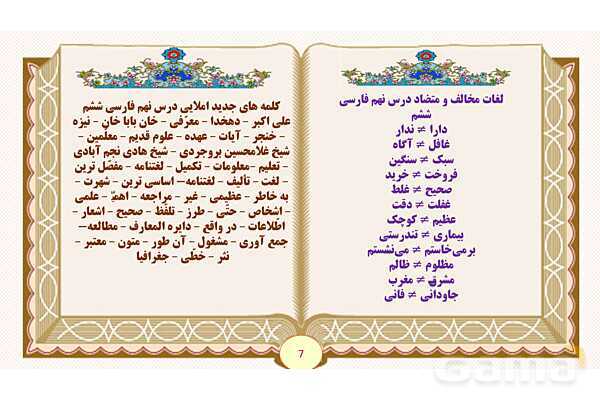 لغات مخالف و متضاد درس نهم فارسی
ششم
دارا ≠ ندار
غافل ≠ آگاه
سبک ≠ سنگین
فروخت ≠ خرید
صحیح ≠ غلط
غفلت ≠ دقت
عظیم ≠ کوچک
بیماری ≠ تندرستی
برمی‌خاستم ≠ می‌نشستم
مظلوم ≠ ظالم
مشرق ≠ مغرب
جاودانی ≠ فانی
کلمه های جدید املایی درس نهم فارسی ششم
علی اکبر - دهخدا - معرّفی - خان بابا خان - نیزه
- خنجر - آیات - عهده - علوم قدیم - معلّمین -
شیخ غلامحسین بروجردی - شیخ هادی نجم آبادی
- تعلیم - معلومات - تکمیل - لغتنامه - مفصّل ترین
- لغت - تألیف - لغتنامه - اساسی ترین - شهرت -
به خاطر - عظیمی - غیر - مراجعه - اهمّ - علمی
- اشخاص - حتّی - طرز - تلفّظ - صحیح - اشعار -
اطّلاعات - در واقع - دایره المعارف - مطالعه -
جمع آوری - مشغول - آن طور - متون - معتبر -
نثر - خطّی - جغرافیا
7
Gama